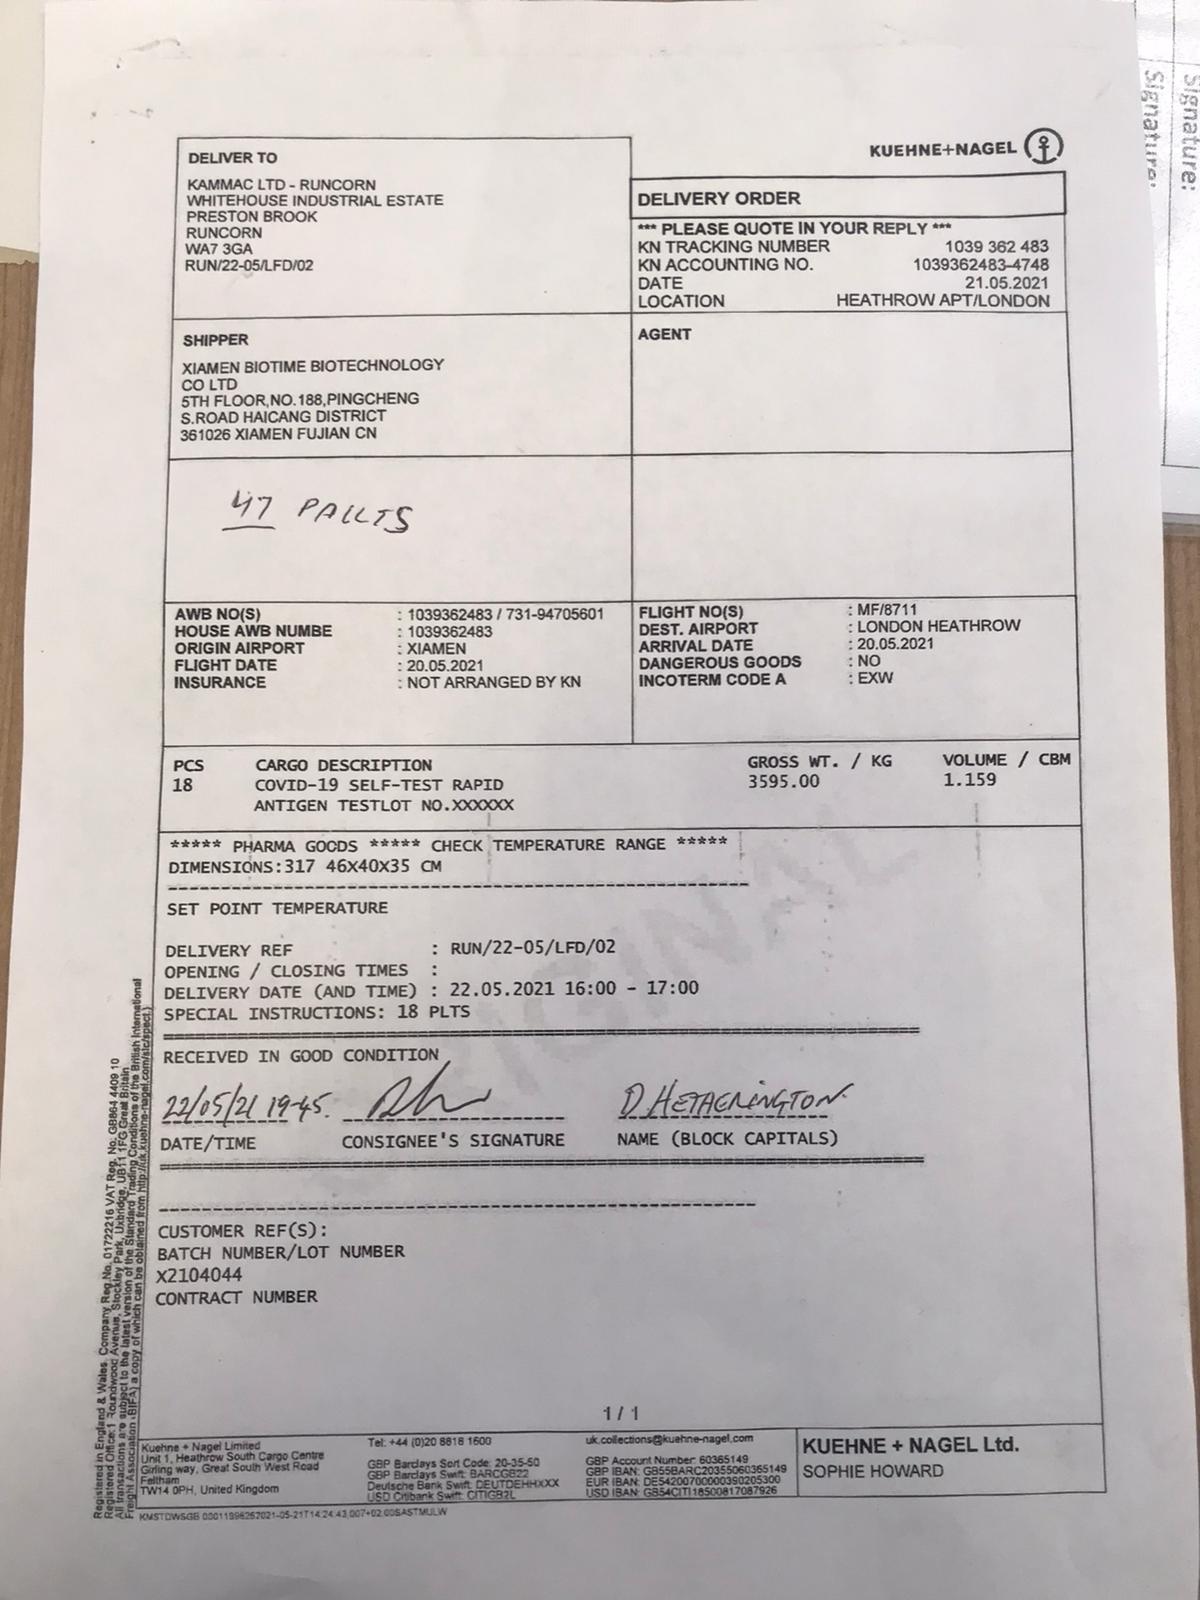 Signature:
Signature:
KUEHNE+NAGEL
DELIVER TO
KAMMAC LTD - RUNCORN
WHITEHOUSE INDUSTRIAL ESTATE
PRESTON BROOK
RUNCORN
WA7 3GA
RUN/22-05/LFD/02
DELIVERY ORDER
*** PLEASE QUOTE IN YOUR REPLY ***
KN TRACKING NUMBER 1039 362 483
KN ACCOUNTING NO. 1039362483-4748
DATE 21.05.2021
LOCATION HEATHROW APT/LONDON
SHIPPER
XIAMEN BIOTIME BIOTECHNOLOGY
CO LTD
5TH FLOOR,NO.188,PINGCHENG
S.ROAD HAICANG DISTRICT
361026 XIAMEN FUJIAN CN
AGENT
47 PALLTS
AWB NO(S) : 1039362483 / 731-94705601
HOUSE AWB NUMBE : 1039362483
ORIGIN AIRPORT : XIAMEN
FLIGHT DATE : 20.05.2021
INSURANCE : NOT ARRANGED BY KN
FLIGHT NO(S) : MF/8711
DEST. AIRPORT : LONDON HEATHROW
ARRIVAL DATE : 20.05.2021
DANGEROUS GOODS : NO
INCOTERM CODE A : EXW
PCS CARGO DESCRIPTION GROSS WT. / KG VOLUME / CBM
18 COVID-19 SELF-TEST RAPID 3595.00 1.159
ANTIGEN TESTLOT NO.XXXXXX
***** PHARMA GOODS ***** CHECK TEMPERATURE RANGE *****
DIMENSIONS:317 46X40X35 CM
SET POINT TEMPERATURE
DELIVERY REF : RUN/22-05/LFD/02
OPENING / CLOSING TIMES :
DELIVERY DATE (AND TIME) : 22.05.2021 16:00 - 17:00
SPECIAL INSTRUCTIONS: 18 PLTS
ORIGINAL
RECEIVED IN GOOD CONDITION
22/05/21 19-45. D HETHERINGTON
DATE/TIME CONSIGNEE'S SIGNATURE NAME (BLOCK CAPITALS)
CUSTOMER REF(S):
BATCH NUMBER/LOT NUMBER
X2104044
CONTRACT NUMBER
1 / 1
Registered in England & Wales. Company Reg.No. 01722216 VAT Reg. No. GB864 4409 10
Registered Office:1 Roundwood Avenue, Stockley Park, Uxbridge, UB11 1FG Great Britain
All transactions are subject to the latest version of the Standard Trading Conditions of the British International
Freight Association (BIFA) a copy of which can be obtained from http://uk.kuehne-nagel.com/stc/spect.)
Kuehne + Nagel Limited
Unit 1, Heathrow South Cargo Centre
Girling way, Great South West Road
Feltham
TW14 0PH, United Kingdom
Tel: +44 (0)20 8818 1600
GBP Barclays Sort Code: 20-35-50
GBP Barclays Swift: BARCGB22
Deutsche Bank Swift: DEUTDEHHXXX
USD Citibank Swift: CITIGB2L
uk.collections@kuehne-nagel.com
GBP Account Number: 60365149
GBP IBAN: GB55BARC20355060365149
EUR IBAN: DE54200700000390205300
USD IBAN: GB54CITI18500817087926
KUEHNE + NAGEL Ltd.
SOPHIE HOWARD